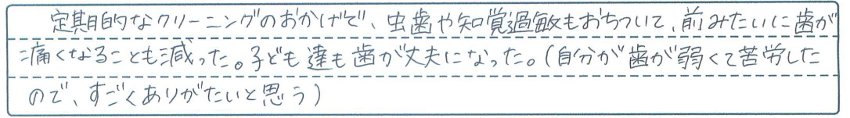 定期的なクリーニングのおかげで、虫歯や知覚過敏もおちついて、前みたいに歯が
痛くなることも減った。子ども達も歯が丈夫になった。(自分が歯が弱くて苦労した
ので、すごくありがたいと思う)